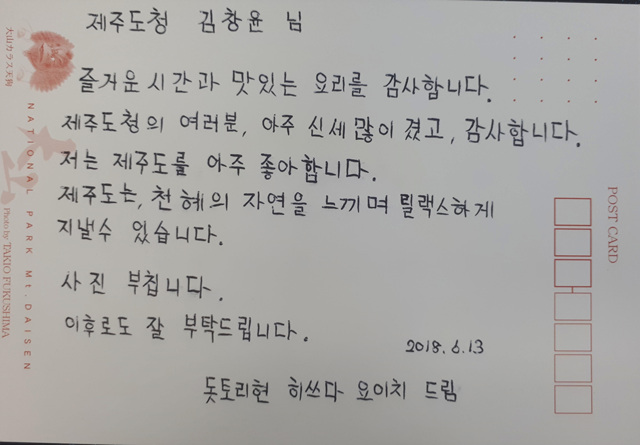 제주도청 김창윤 님
즐거운 시간과 맛있는 요리를 감사합니다.
제주도청의 여러분, 아주 신세 많이 졌고, 감사합니다.
저는 제주도를 아주 좋아합니다.
제주도는, 천혜의 자연을 느끼며 릴랙스하게
지낼수 있습니다.
사진 부칩니다.
이후로도 잘 부탁드립니다.
2018.6.13
돗토리현 히쓰다 요이치 드림
POST CARD
大山カラス天狗
NATIONAL PARK Mt. DAISEN
Photo by TAKIO FUKUSHIMA